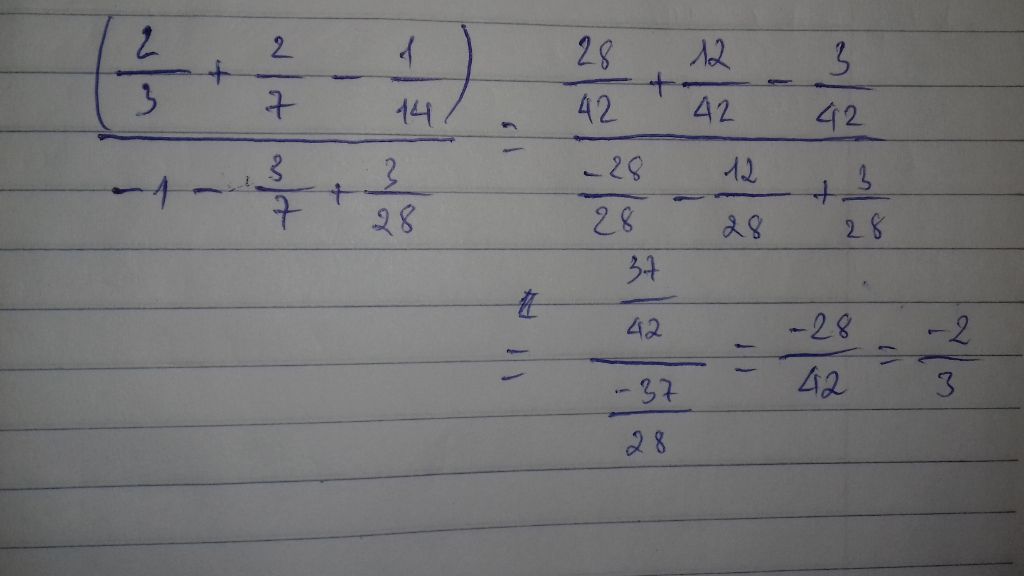 (2/3 + 2/7 - 1/14) / (-1 - 3/7 + 3/28) = (28/42 + 12/42 - 3/42) / (-28/28 - 12/28 + 3/28)
= (37/42) / (-37/28) = -28/42 = -2/3